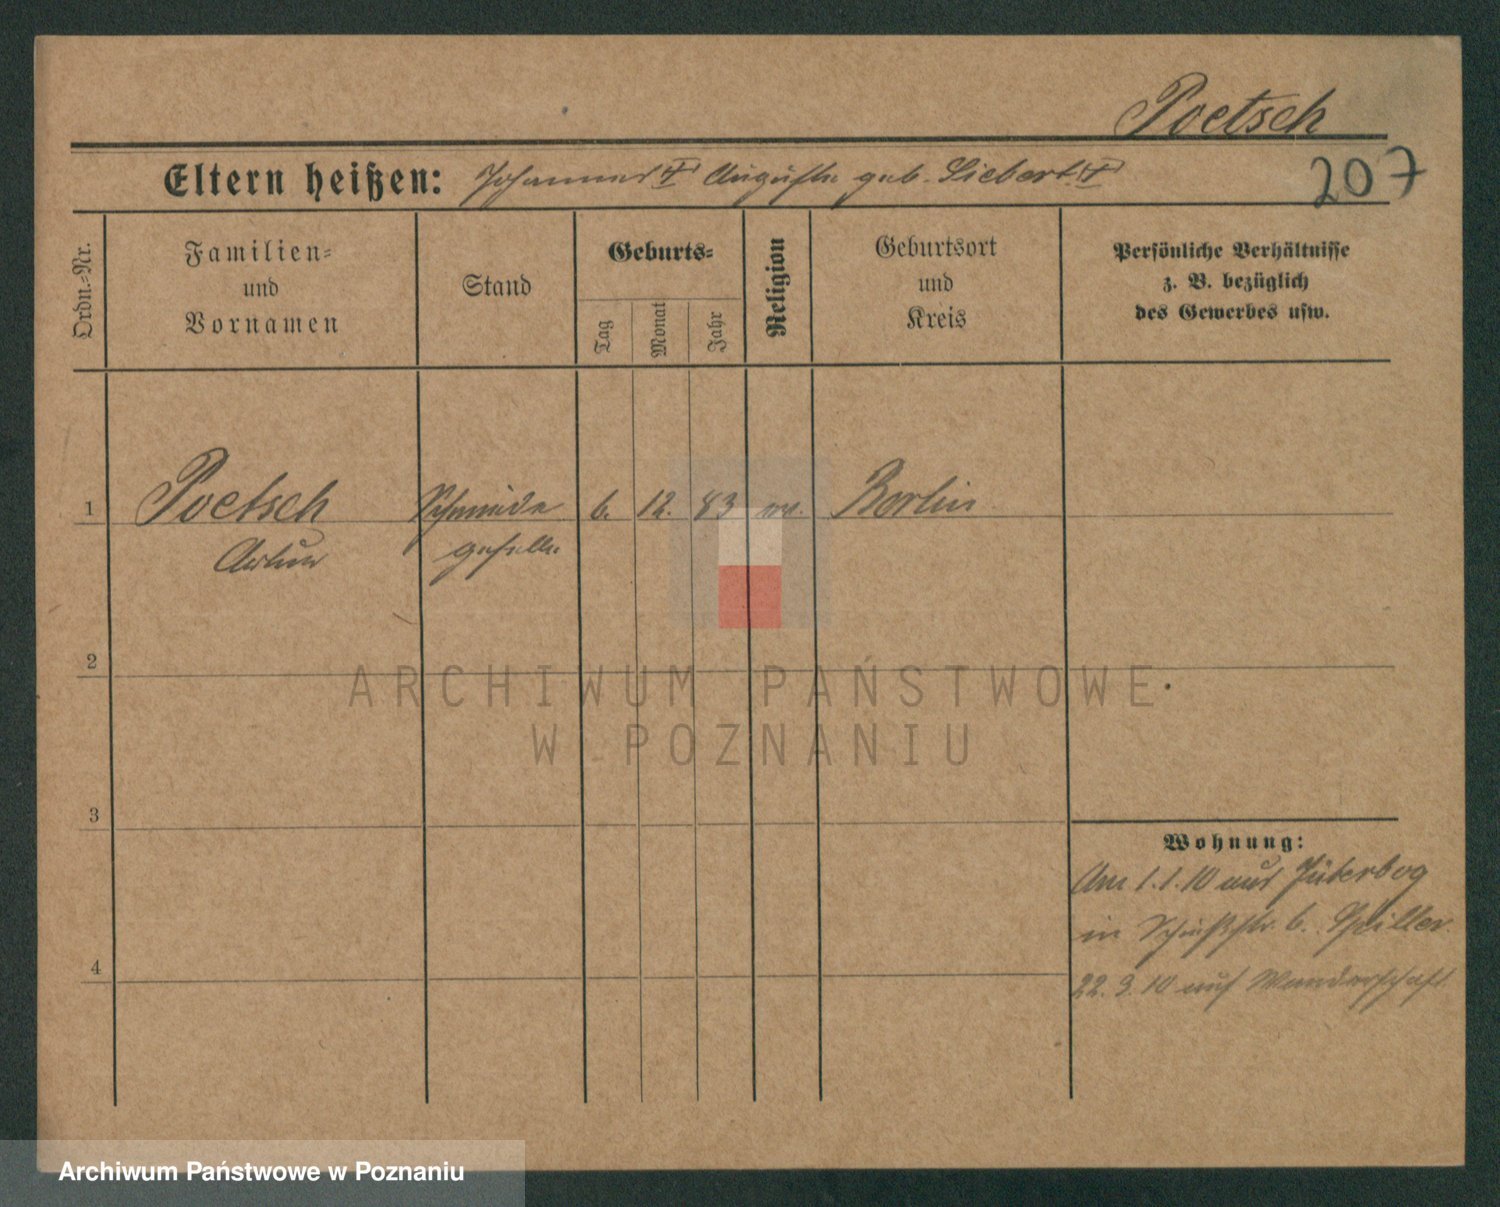 Poetsch
207
Eltern heißen: Johannes † Auguste geb. Siebert †
Ordn.=Nr.
Familien=
und
Vornamen
Stand
Geburts=
Tag
Monat
Jahr
Religion
Geburtsort
und
Kreis
Persönliche Verhältnisse
z. B. bezüglich
des Gewerbes usw.
1 Poetsch Schmiede 6. 12. 83 ev. Berlin
Artur geselle
2
3
4
Wohnung:
Am 1.1.10 aus Jüterbog
in Schießstr. 6. Spiller.
22.3.10 auf Wanderschaft
ARCHIWUM PAŃSTWOWE
W POZNANIU
Archiwum Państwowe w Poznaniu